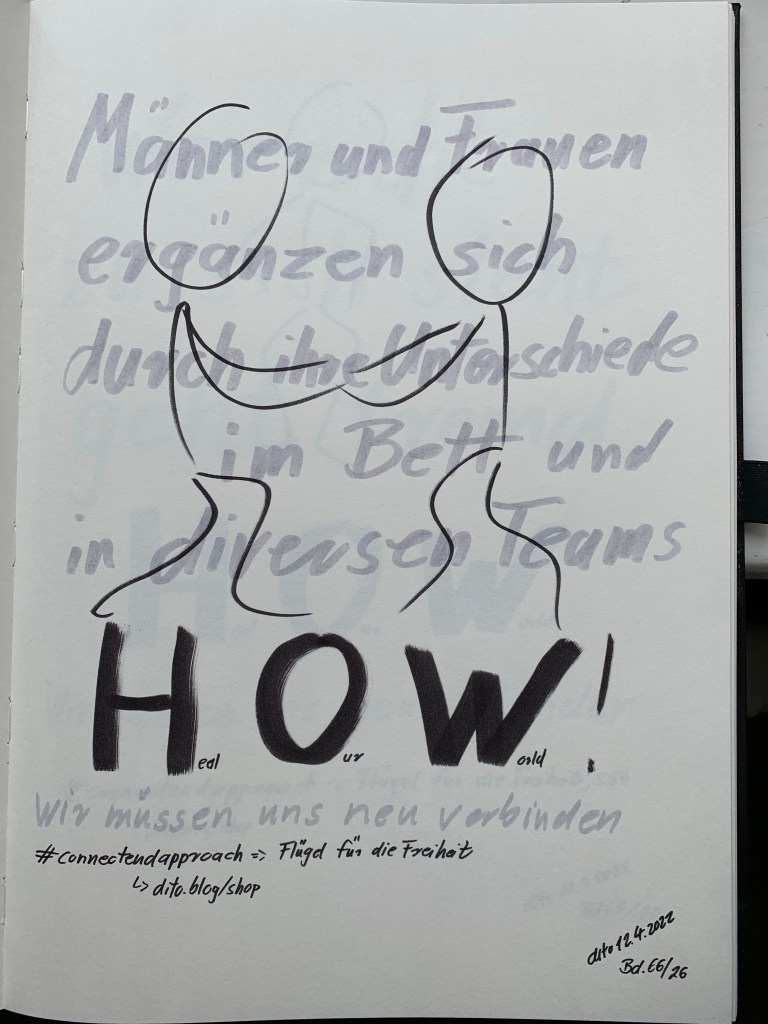 Männer und Frauen
ergänzen sich
durch ihre Unterschiede
im Bett und
in diversen Teams
HOW!
eal ur orld
wir müssen uns neu verbinden
#connectendapproach => Flügel für die Freiheit
↳ dito.blog/shop
dito 12.4.2022
Bd. E6/26